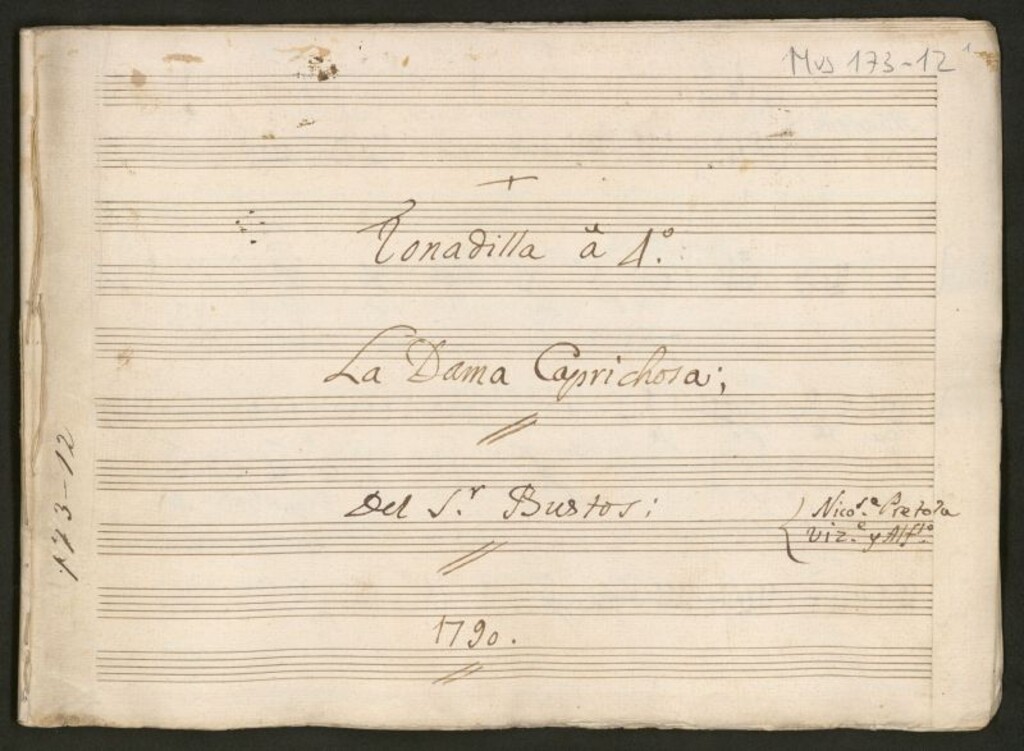 Mus 173-12
Tonadilla à 4º.
La Dama Caprichosa;
Del S.r Bustos;
Nicos.a Pretola
Viz.e y Alf.so
1790.
173-12